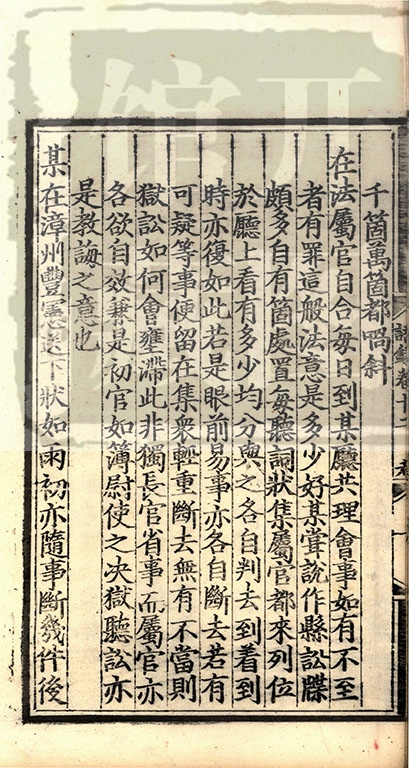 千箇萬箇都喎斜
在法屬官自合每日到某廳共理會事如有不至
者有罪這般法意是多少好某嘗說作縣訟牒
頗多自有箇處置每聽詞狀集屬官都來列位
於廳上看有多少均分與之各自判去到着到
時亦復如此若是眼前易事亦各自斷去若有
可疑等事便留在集衆輕重斷去無有不當則
獄訟如何會壅滯此非獨長官省事而屬官亦
各欲自效兼是初官如簿尉使之决獄聽訟亦
是教誨之意也
某在漳州豐憲送下狀如雨初亦隨事斷幾件後